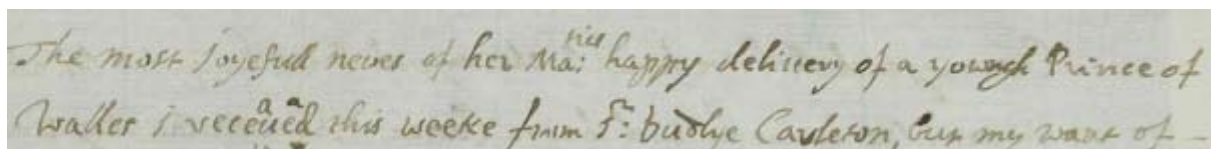 The most Joyefull newes of her Ma:ties happy delivery of a yowngh Prince of
Walles i receaued this weeke from Sr: dudlye Carleton, but my want of